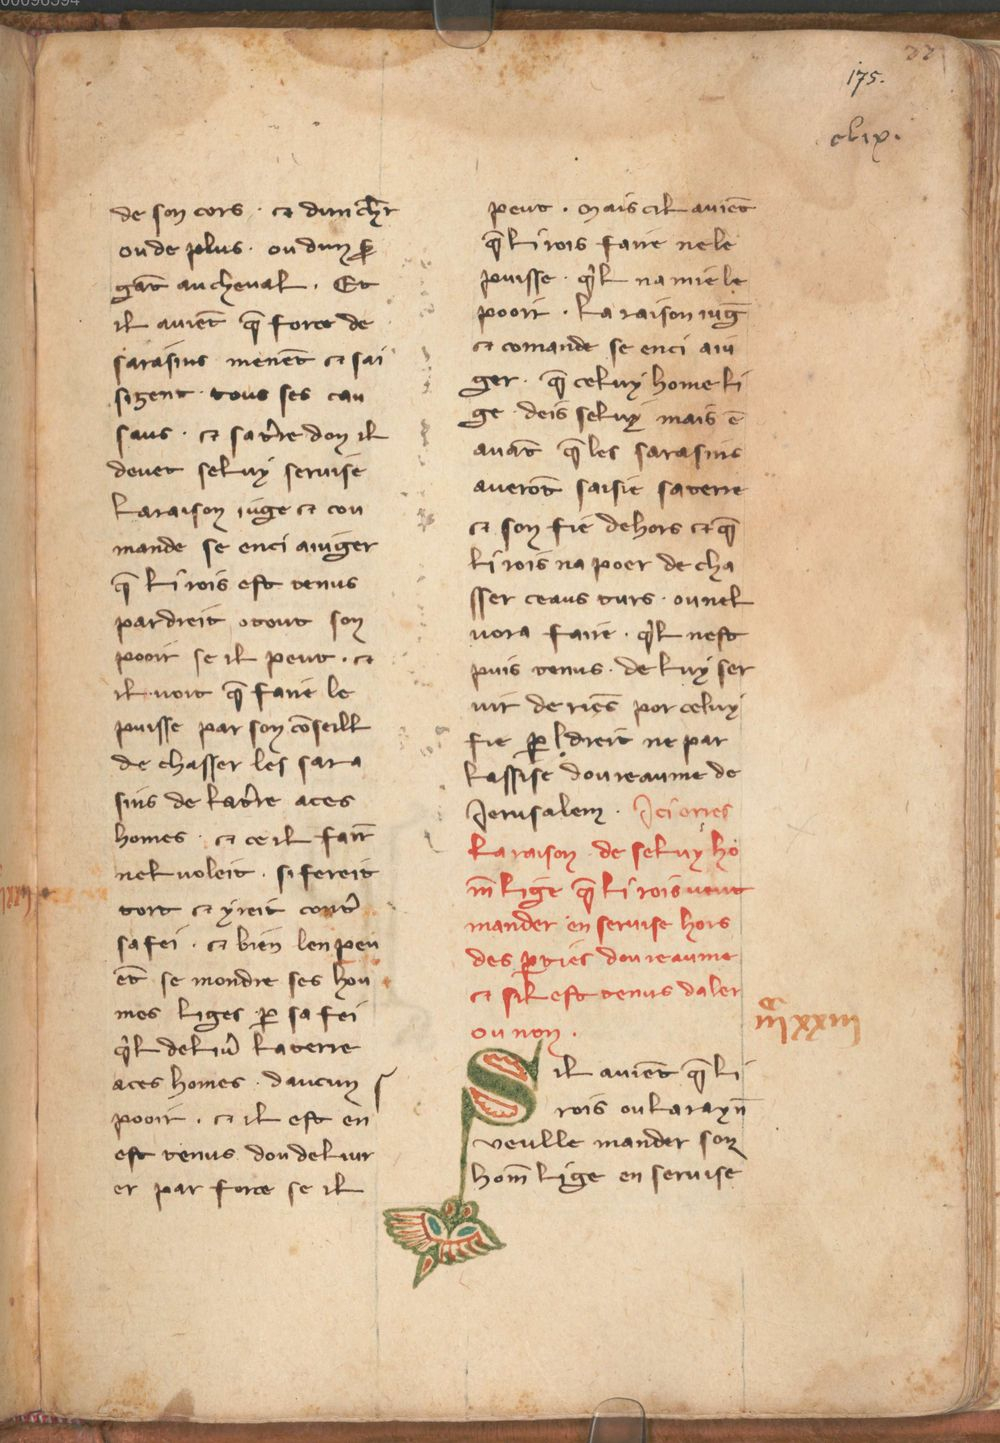 175.
clix.
de son cors · et dun ch̅r
ou de plus · ou dun ꝑ
ga̅t au cheual · Et
il auie̅t q̅ force de
sarasins mene̅t et sai
sizent · tous ses cau
saus · et sat̛re don il
deuet seluy seruise
la raison iuge et cou
mande se enci auiger
q̅ li rois est tenus
par dreit o tout son
pooir se il peut · et
il uoit q̅ faire le
puisse par son co̅seill
de chasser les sara
sins de lat̛re a ces
homes · et ce il faire
nel uoleit · si fereit
tort et yreit cont̛
sa fei · et bien len peu
e̅t se mondre ses hou
mes liges ꝑ sa fei
q̛l deliư la terre
a ces homes · daucun s
pooir · et il est en
est tenus dou deliur
er par force se il
peut · mais cil auie̅t
q̅ li rois faire ne le
puisse · q̛l na mie le
pooir · la raison iug̅
et comande se enci aui
ger · q̅ celuy home li
ge deis seluy mais e̅
aua̅t q̅ les sarasins
auero̅t saisie sa terre
et son fie dehors et q̅
li rois na poer de cha
sser ceaus turs · ou nel
uora faire · q̛l nest
puis tenus · de luy ser
uir de rie̅s por celuy
fie ꝑ dreit ne par
lassise dou reaume de
Jerusalem · Ici orres
la raison · de seluy ho
m̅ lige q̅ li rois ueut
mander en seruise hors
des ꝑties dou reaume
et sil est tenus daler
ou non ·
S il auie̅t q̅ li
rois ou la rayn̅
veulle mander son
hom̅ lige en seruise